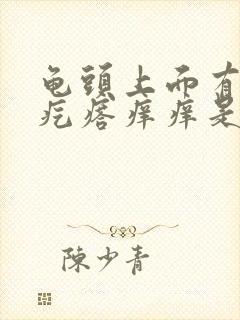 龟頭上而有
疙瘩痒痒是
陳少青